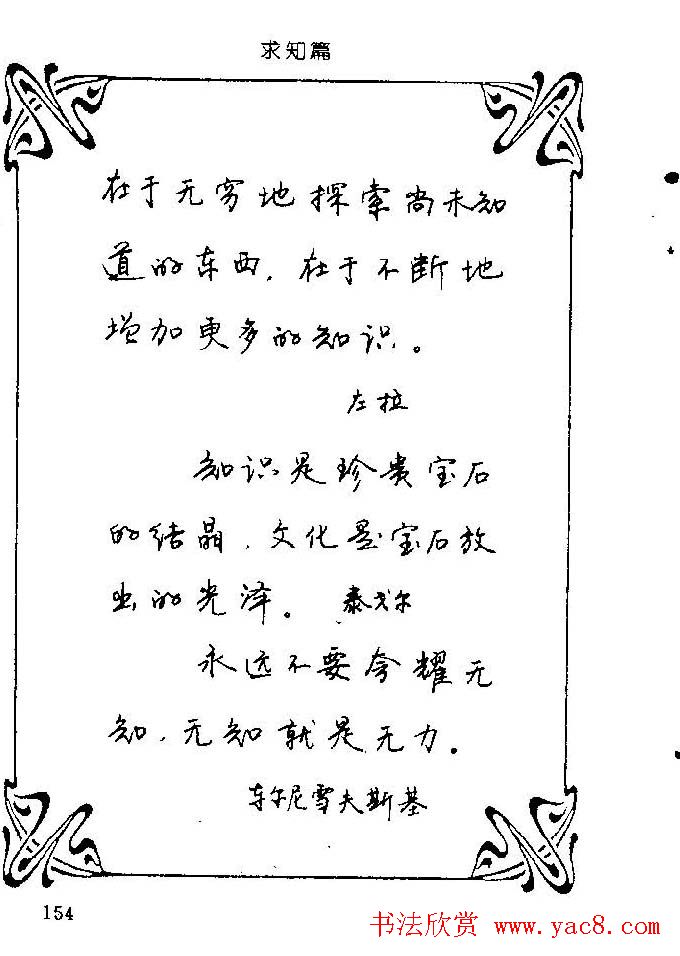 求知篇
在于无穷地探索尚未知
道的东西，在于不断地
增加更多的知识。
左拉
知识是珍贵宝石
的结晶，文化是宝石放
出的光泽。 泰戈尔
永远不要夸耀无
知，无知就是无力。
车尔尼雪夫斯基
154
书法欣赏 www.yac8.com